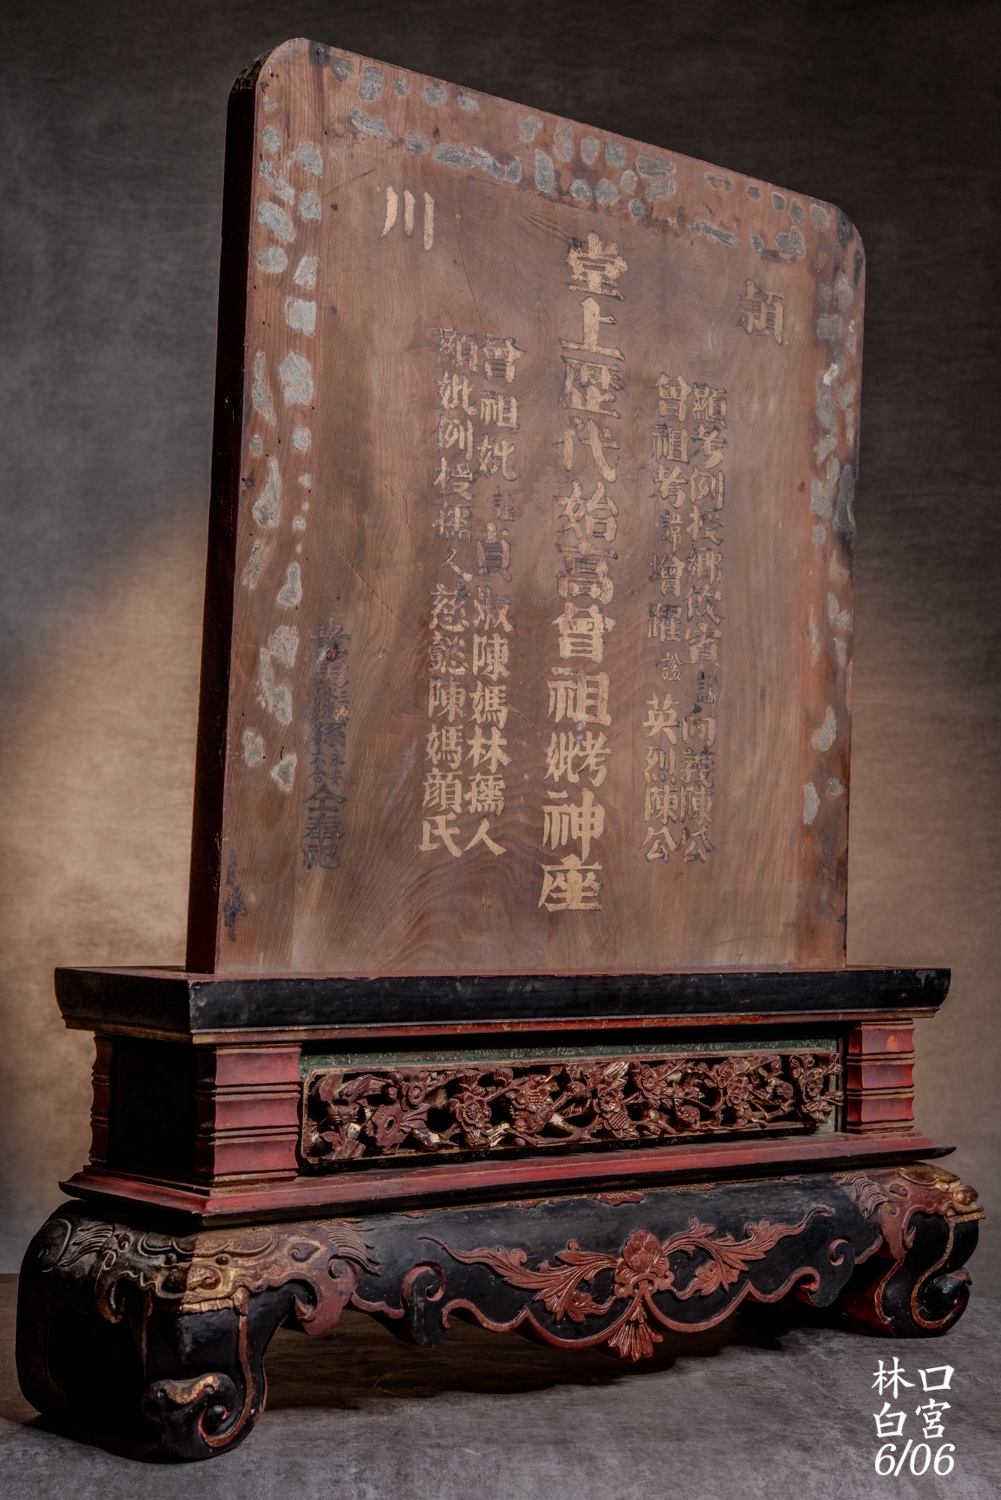 穎
顯考例授鄉飲賓向義陳公
曾祖考諱增曜諡英烈陳公
堂上歷代始高曾祖妣考神座
曾祖妣貞淑陳媽林孺人
顯妣例授孺人慈懿陳媽顏氏
川
仝奉祀
林口
白宮
6/06